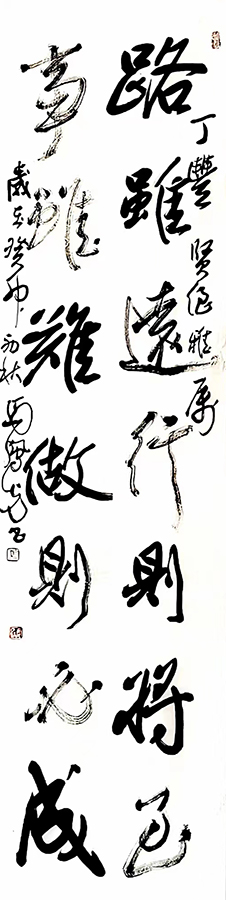 丁豐贤侄雅属
路雖遠行則將至
事雖難做則必成
歲在癸卯初秋馬